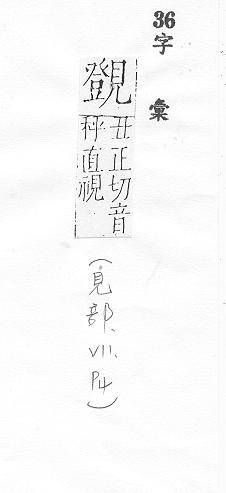 36字彙
覴
丑正切音
秤直視
(見部、VII、P4)